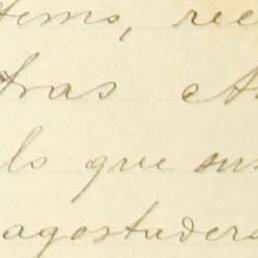 tems, rec
tras
ls que sus
agostadera